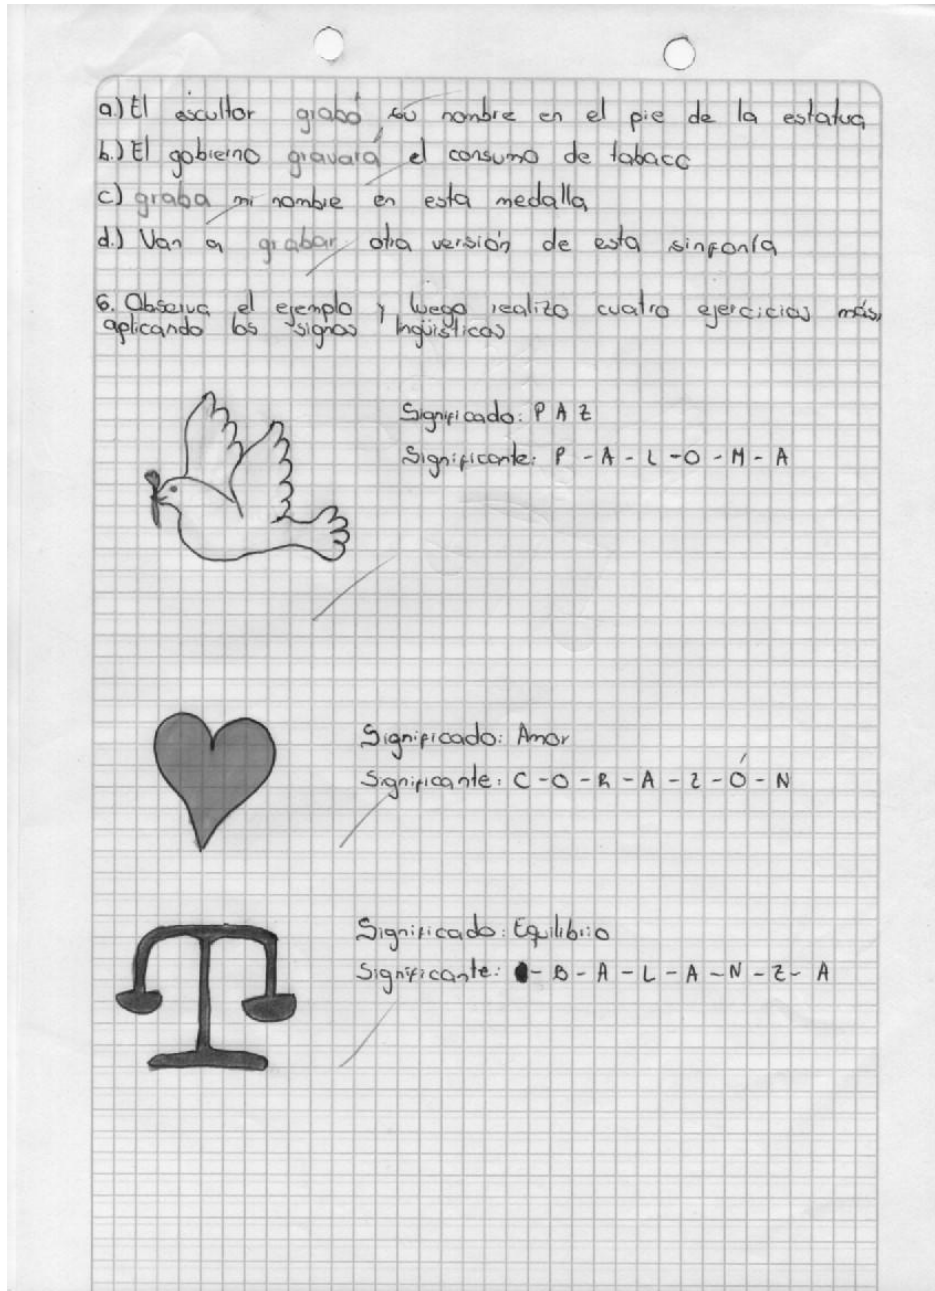 a.) El escultor grabó su nombre en el pie de la estatua
b.) El gobierno gravará el consumo de tabaco
c) graba mi nombre en esta medalla
d.) Van a grabar otra versión de esta sinfonía
6. Observa el ejemplo y luego realizo cuatro ejercicios más,
aplicando los signos lingüísticos
Significado: P A Z
Significante: P - A - L - O - M - A
Significado: Amor
Significante: C - O - R - A - Z - Ó - N
Significado: Equilibrio
Significante: - B - A - L - A - N - Z - A